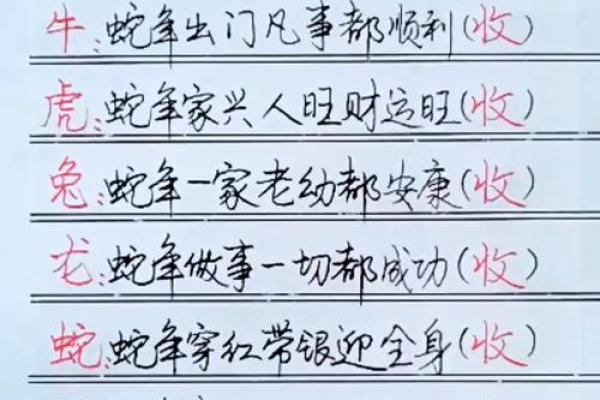 牛:蛇年出门凡事都顺利(收)
虎:蛇年家兴人旺财运旺(收)
兔:蛇年一家老幼都安康(收)
龙:蛇年做事一切都成功(收)
蛇:蛇年穿红带银迎全身(收)